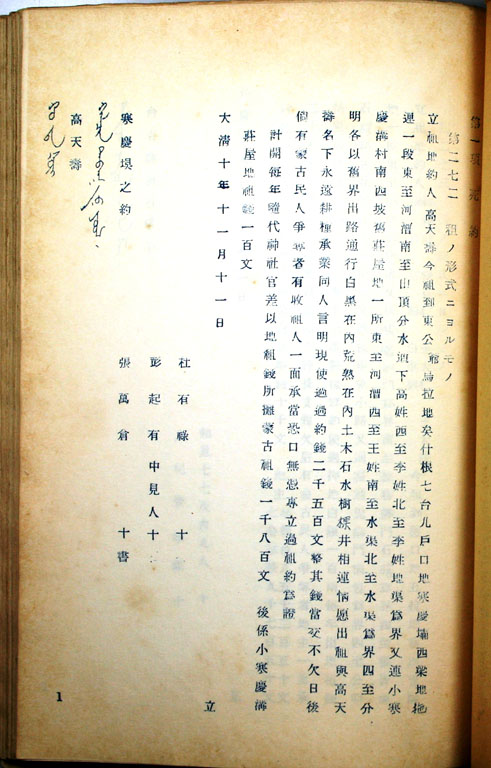 第一項 死約
第一二七二 租ノ形式ニヨルモノ
立租地約人高天壽今租到東公爺烏拉地矣什根七台几戶口地寒慶壩西梁地拖
運一段東至河漕南至山頂分水㘭下高姓西至李姓北至李姓地渠爲界又連小寒
慶溝村南西坡舊莊屋地一所東至河漕西至王姓南至水渠北至水渠爲界四至分
明各以舊界出路通行白黑在內荒熟在內土木石水樹株井相連情愿出租與高天
壽名下永遠耕種承業同人言明現使過過約錢二千五百文整其錢當交不欠日後
倘有蒙古民人爭奪者有收租人一面承當恐口無憑專立過租約爲證
計開每年隨代神社官差以地租錢所攤蒙古租錢一千八百文 後係小寒慶溝
莊屋地租錢一百文
大清十年十一月十一日 立
寒慶垻之約
高天壽
杜有祿 十
彭起有 中見人十
張萬倉 十書
1